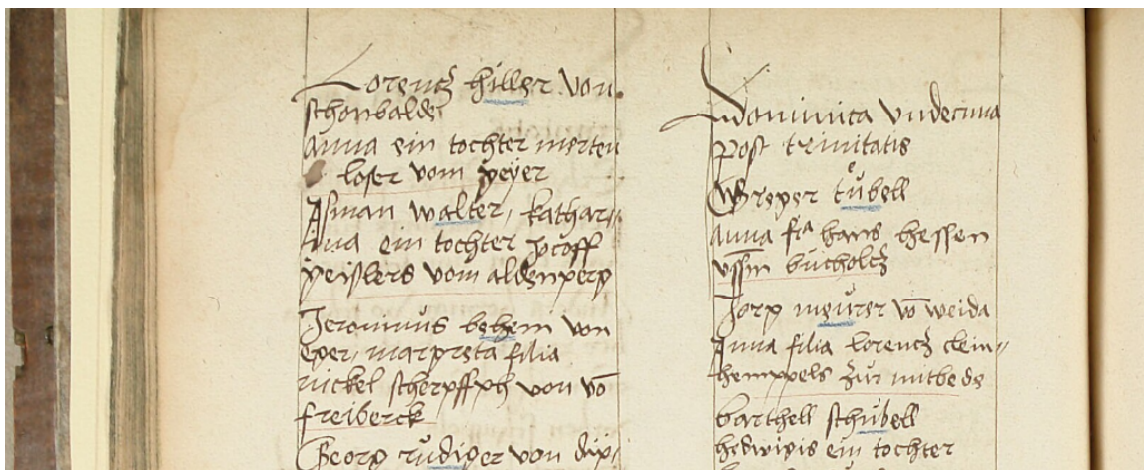 Lorencz hiller von
schonbalde
Anna ein tochter merten
loser vom peyer
Asman walter, kathar=
ina ein tochter Jocoff
peislers vom aldenperg
Jeronimus behem von
eger, margreta filia
nickel scherpffgh von vō
freiberck
Georg rudiger von
dominica vndecima
post trinitatis
Greger tůbell
Anna fra hans hessen
vssm bucholcz
Jorg meurer vō weida
Anna filia lorencz clein=
hemppels zur
barthell schubell
hedwigis ein tochter